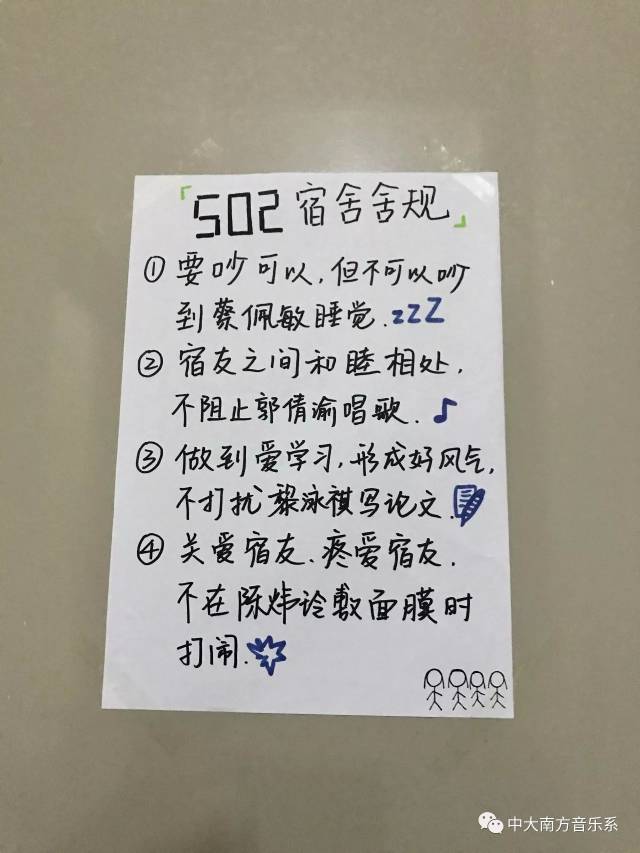 「502宿舍舍规」
①要吵可以,但不可以吵
到蔡佩敏睡觉.zZZ
②宿友之间和睦相处,
不阻止郭倩渝唱歌.
③做到爱学习,形成好风气,
不打扰黎泳祺写论文.
④关爱宿友.疼爱宿友.
不在陈炜诊敷面膜时
打闹.
中大南方音乐系